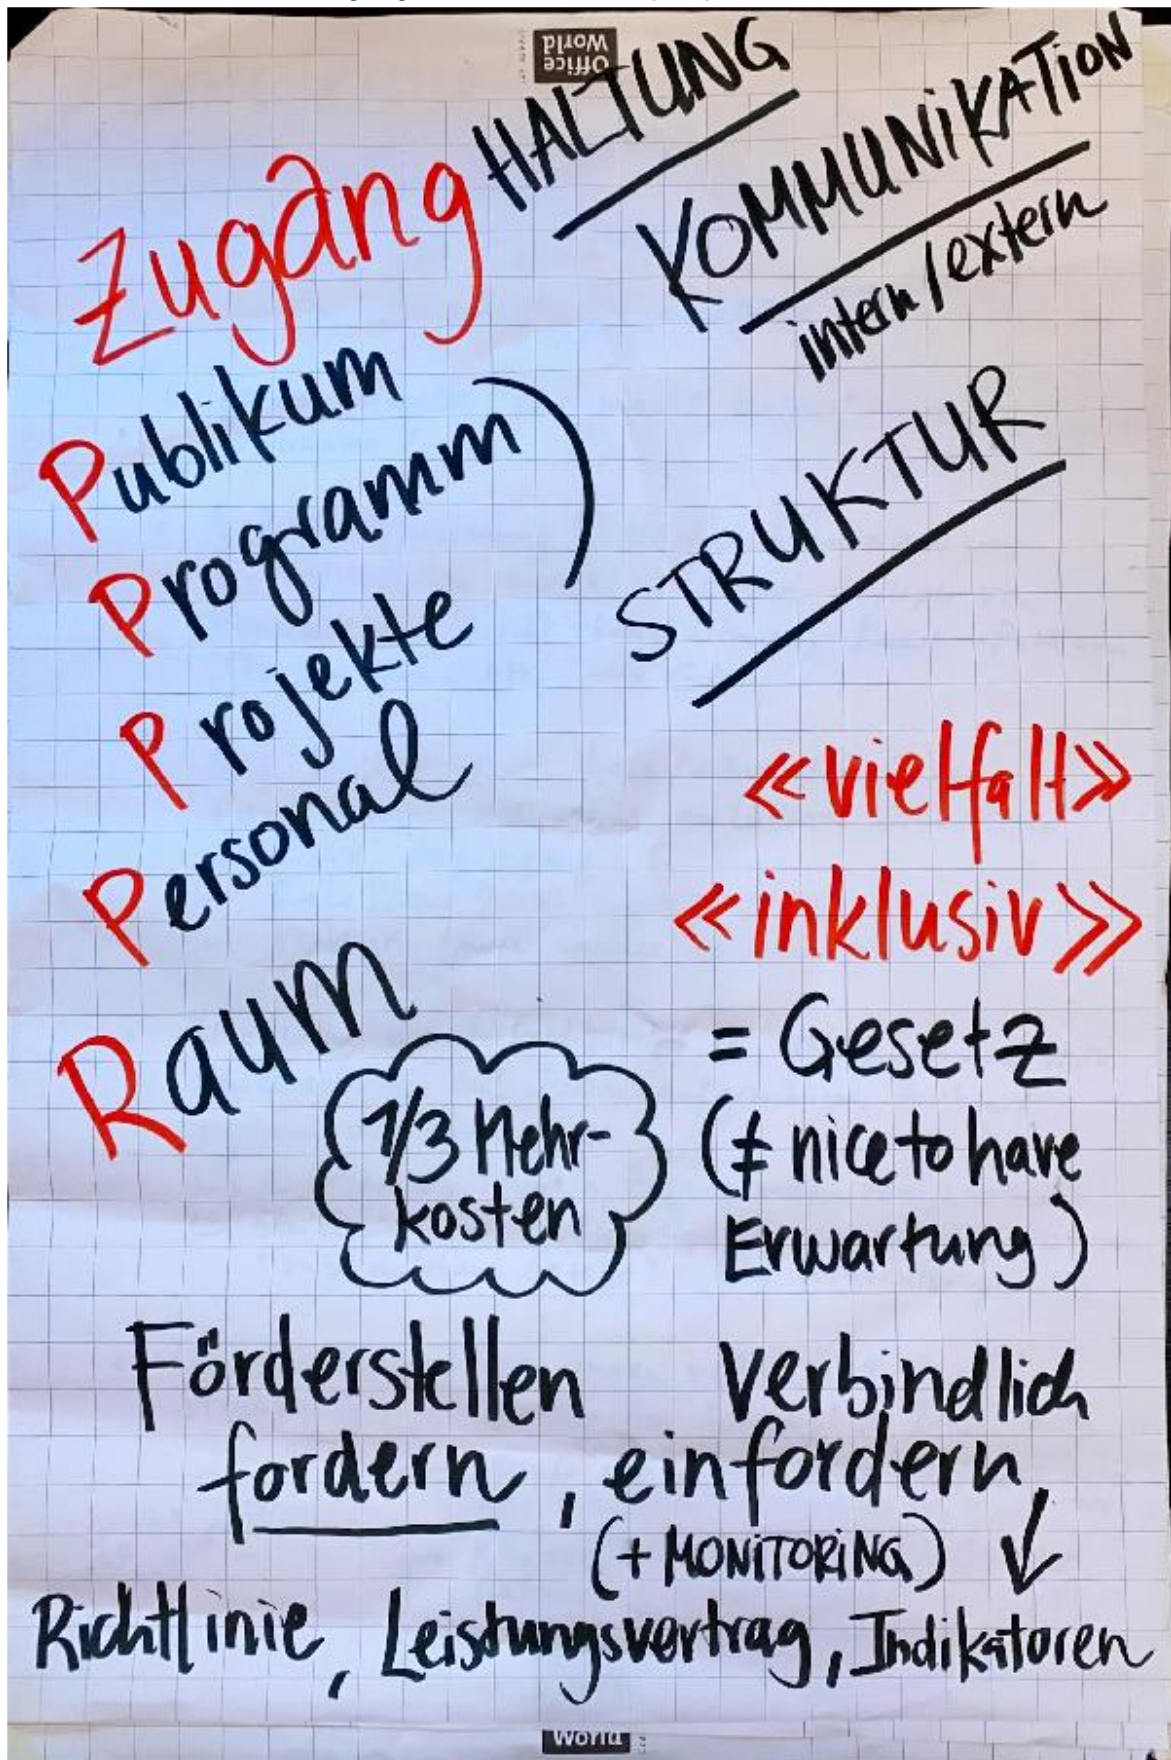 Office
World
Zugang
HALTUNG
KOMMUNIKATION
intern / extern
STRUKTUR
Publikum
Programm
Projekte
Personal
Raum
1/3 Mehr-
kosten
«vielfalt»
«inklusiv»
= Gesetz
(≠ nice to have
Erwartung)
Förderstellen verbindlich
fordern, einfordern
(+ MONITORING)
Richtlinie, Leistungsvertrag, Indikatoren
World